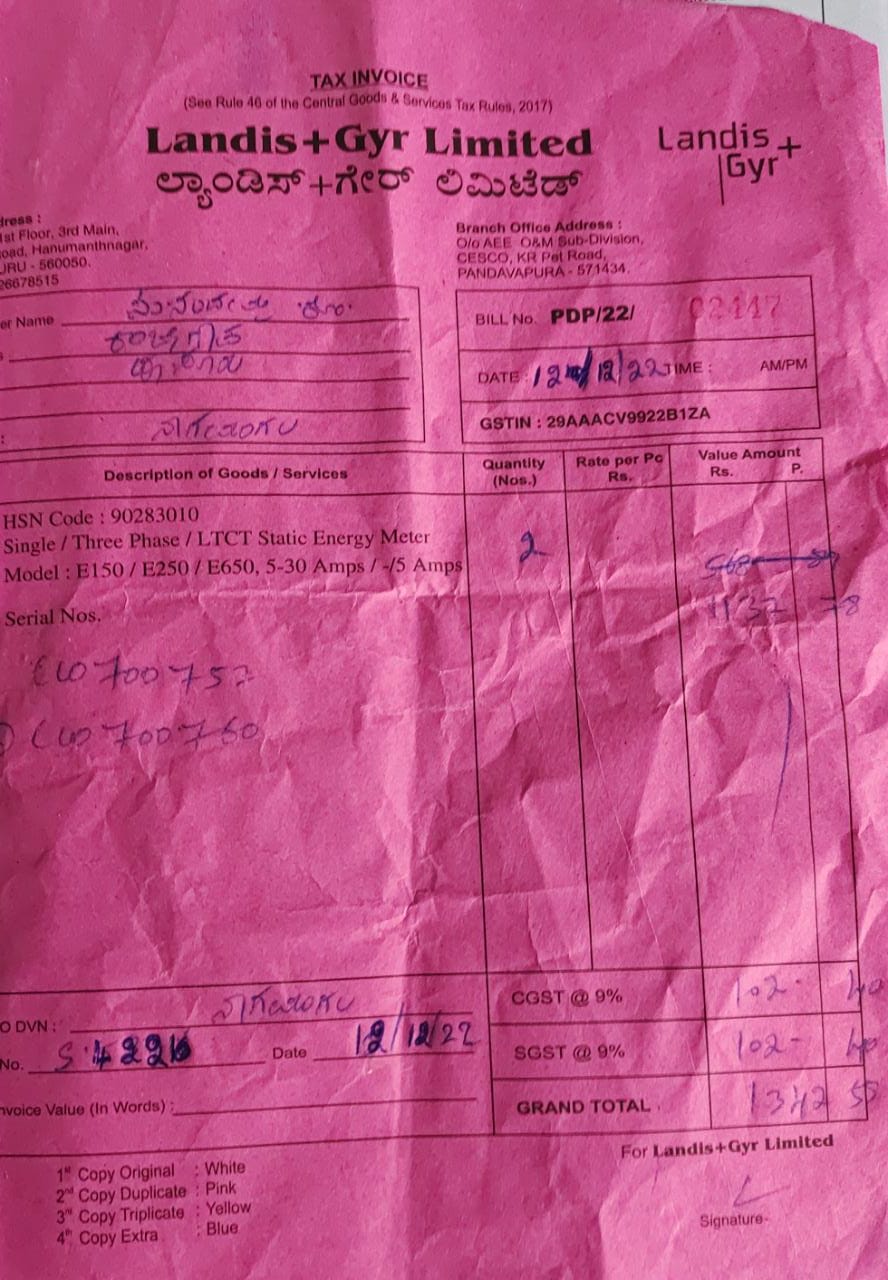 TAX INVOICE
(See Rule 46 of the Central Goods & Services Tax Rules, 2017)
Landis+Gyr Limited
ಲ್ಯಾಂಡಿಸ್+ಗೇರ್ ಲಿಮಿಟೆಡ್
Landis+
Gyr
dress :
1st Floor, 3rd Main,
oad, Hanumanthnagar,
URU - 560050.
26678515
Branch Office Address :
O/o AEE O&M Sub-Division,
CESCO, KR Pet Road,
PANDAVAPURA - 571434.
er Name
BILL No. PDP/22/ 02447
DATE : 12/12/22 TIME : AM/PM
GSTIN : 29AAACV9922B1ZA
Description of Goods / Services
Quantity (Nos.)
Rate per Pc Rs.
Value Amount Rs. P.
HSN Code : 90283010
Single / Three Phase / LTCT Static Energy Meter
Model : E150 / E250 / E650, 5-30 Amps / -/5 Amps
2
1137 78
Serial Nos.
700757
700760
CGST @ 9% 102- 40
O DVN :
SGST @ 9% 102- 40
No. Date 12/12/22
nvoice Value (In Words) :
GRAND TOTAL 1342
For Landis+Gyr Limited
1st Copy Original : White
2nd Copy Duplicate : Pink
3rd Copy Triplicate : Yellow
4th Copy Extra : Blue
Signature